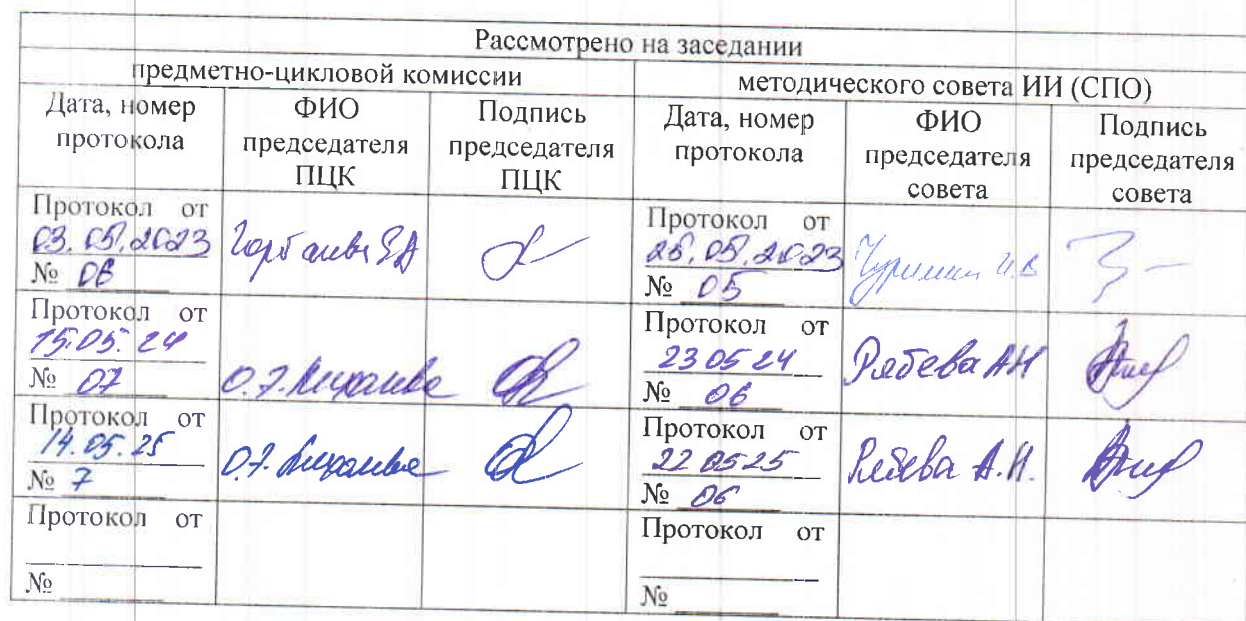 Рассмотрено на заседании
предметно-цикловой комиссии
методического совета ИИ (СПО)
Дата, номер протокола
ФИО председателя ПЦК
Подпись председателя ПЦК
Дата, номер протокола
ФИО председателя совета
Подпись председателя совета
Протокол от
03.05.2023
№ 06
Протокол от
05.2023
№ 05
Протокол от
15.05.24
№ 07
О.Э.
Протокол от
23 05 24
№ 06
Рябева АН
Протокол от
14.05.25
№ 7
Протокол от
22 05 25
№ 06
Рябева А.Н.
Протокол от
№
Протокол от
№